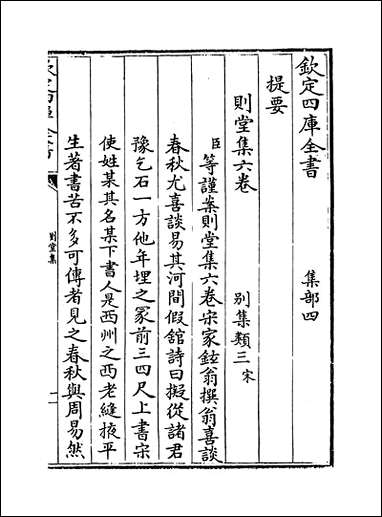 欽定四庫全書 集部四
提要
則堂集六卷 别集類三 宋
臣等謹案則堂集六卷宋家鉉翁撰翁喜談
春秋尤喜談易其河間假舘詩曰擬從諸君
豫乞石一方他年埋之冢前三四尺上書宋
使姓某其名某下書人是西州之西老縫掖平
生著書苦不多可傳者見之春秋與周易然
則堂集